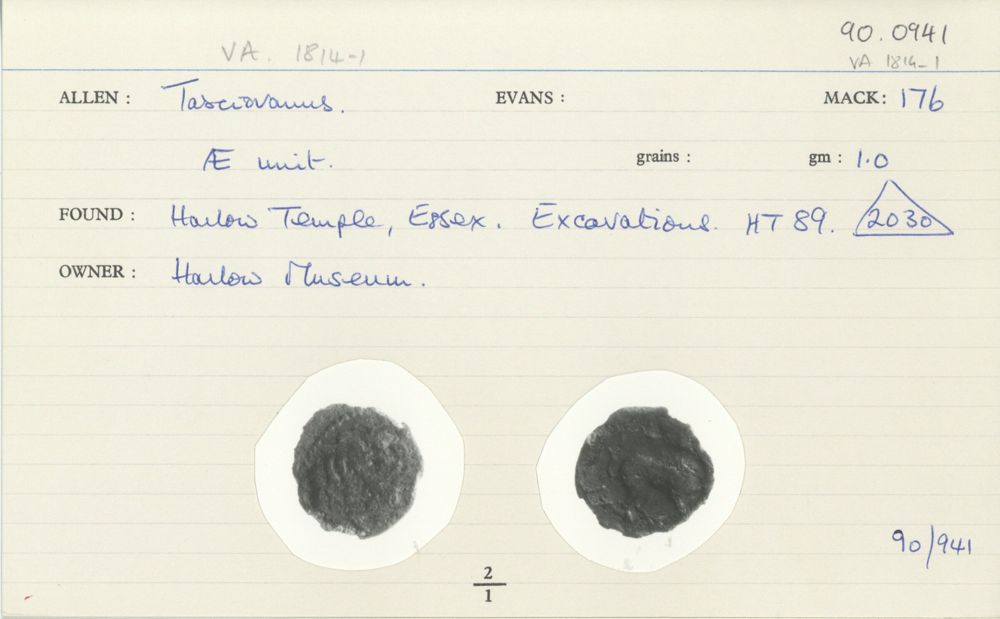 90.0941
VA. 1814-1
VA 1814-1
ALLEN : Tasciovanus. EVANS : MACK: 176
Æ unit. grains : gm : 1.0
FOUND : Harlow Temple, Essex. Excavations. HT 89. 2030
OWNER : Harlow Museum.
90/941
2
1